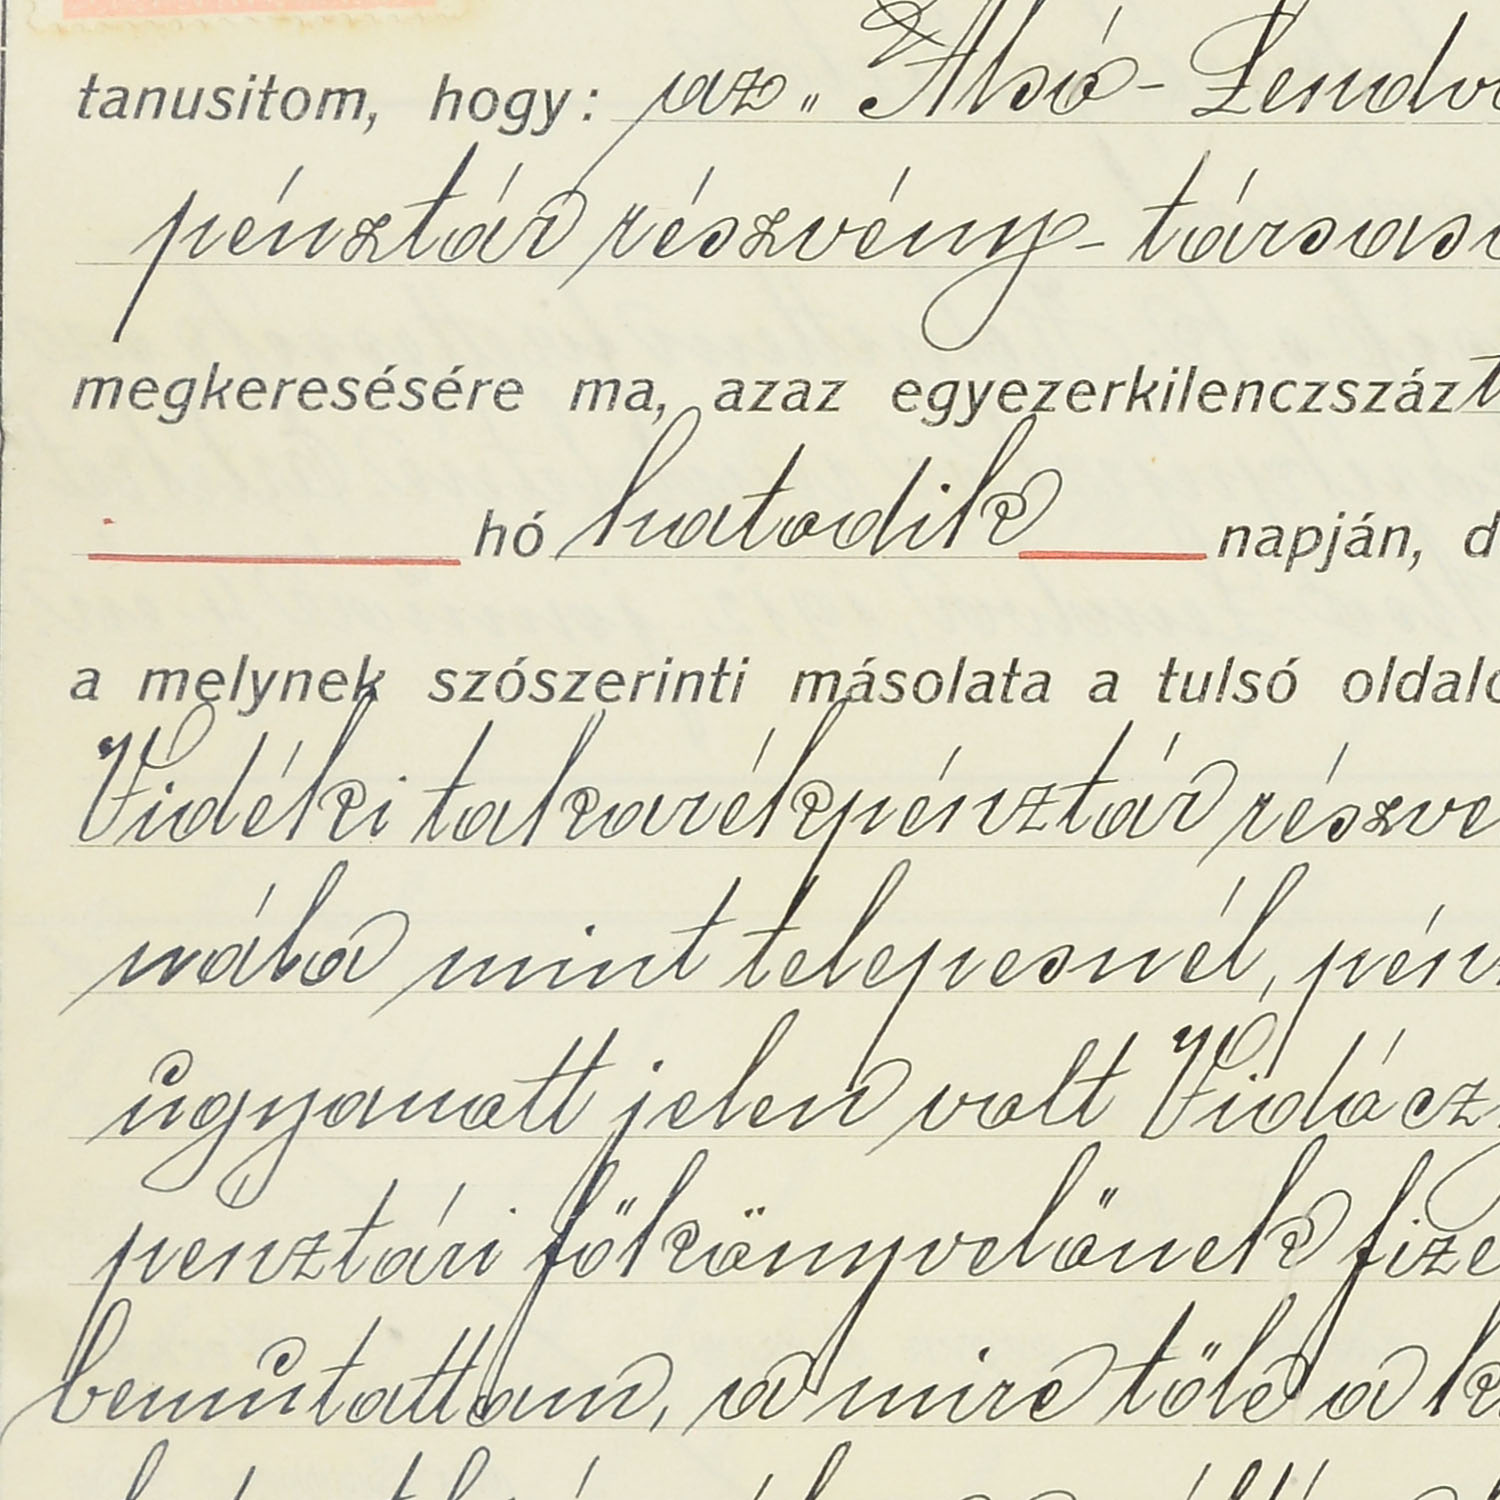 tanusitom, hogy: az „Alsó-Lendva
pénztár részvény-társasá
megkeresésére ma, azaz egyezerkilenczszáz t
hó hatodik napján, d
a melynek szószerinti másolata a tulsó oldalo
Vidéki takarékpénztár részvé
nála mint telepesnél, pén
ugyanott jelen volt Vidócz
pénztári főkönyvelőnek fize
bemutattam, a mire tőle a k